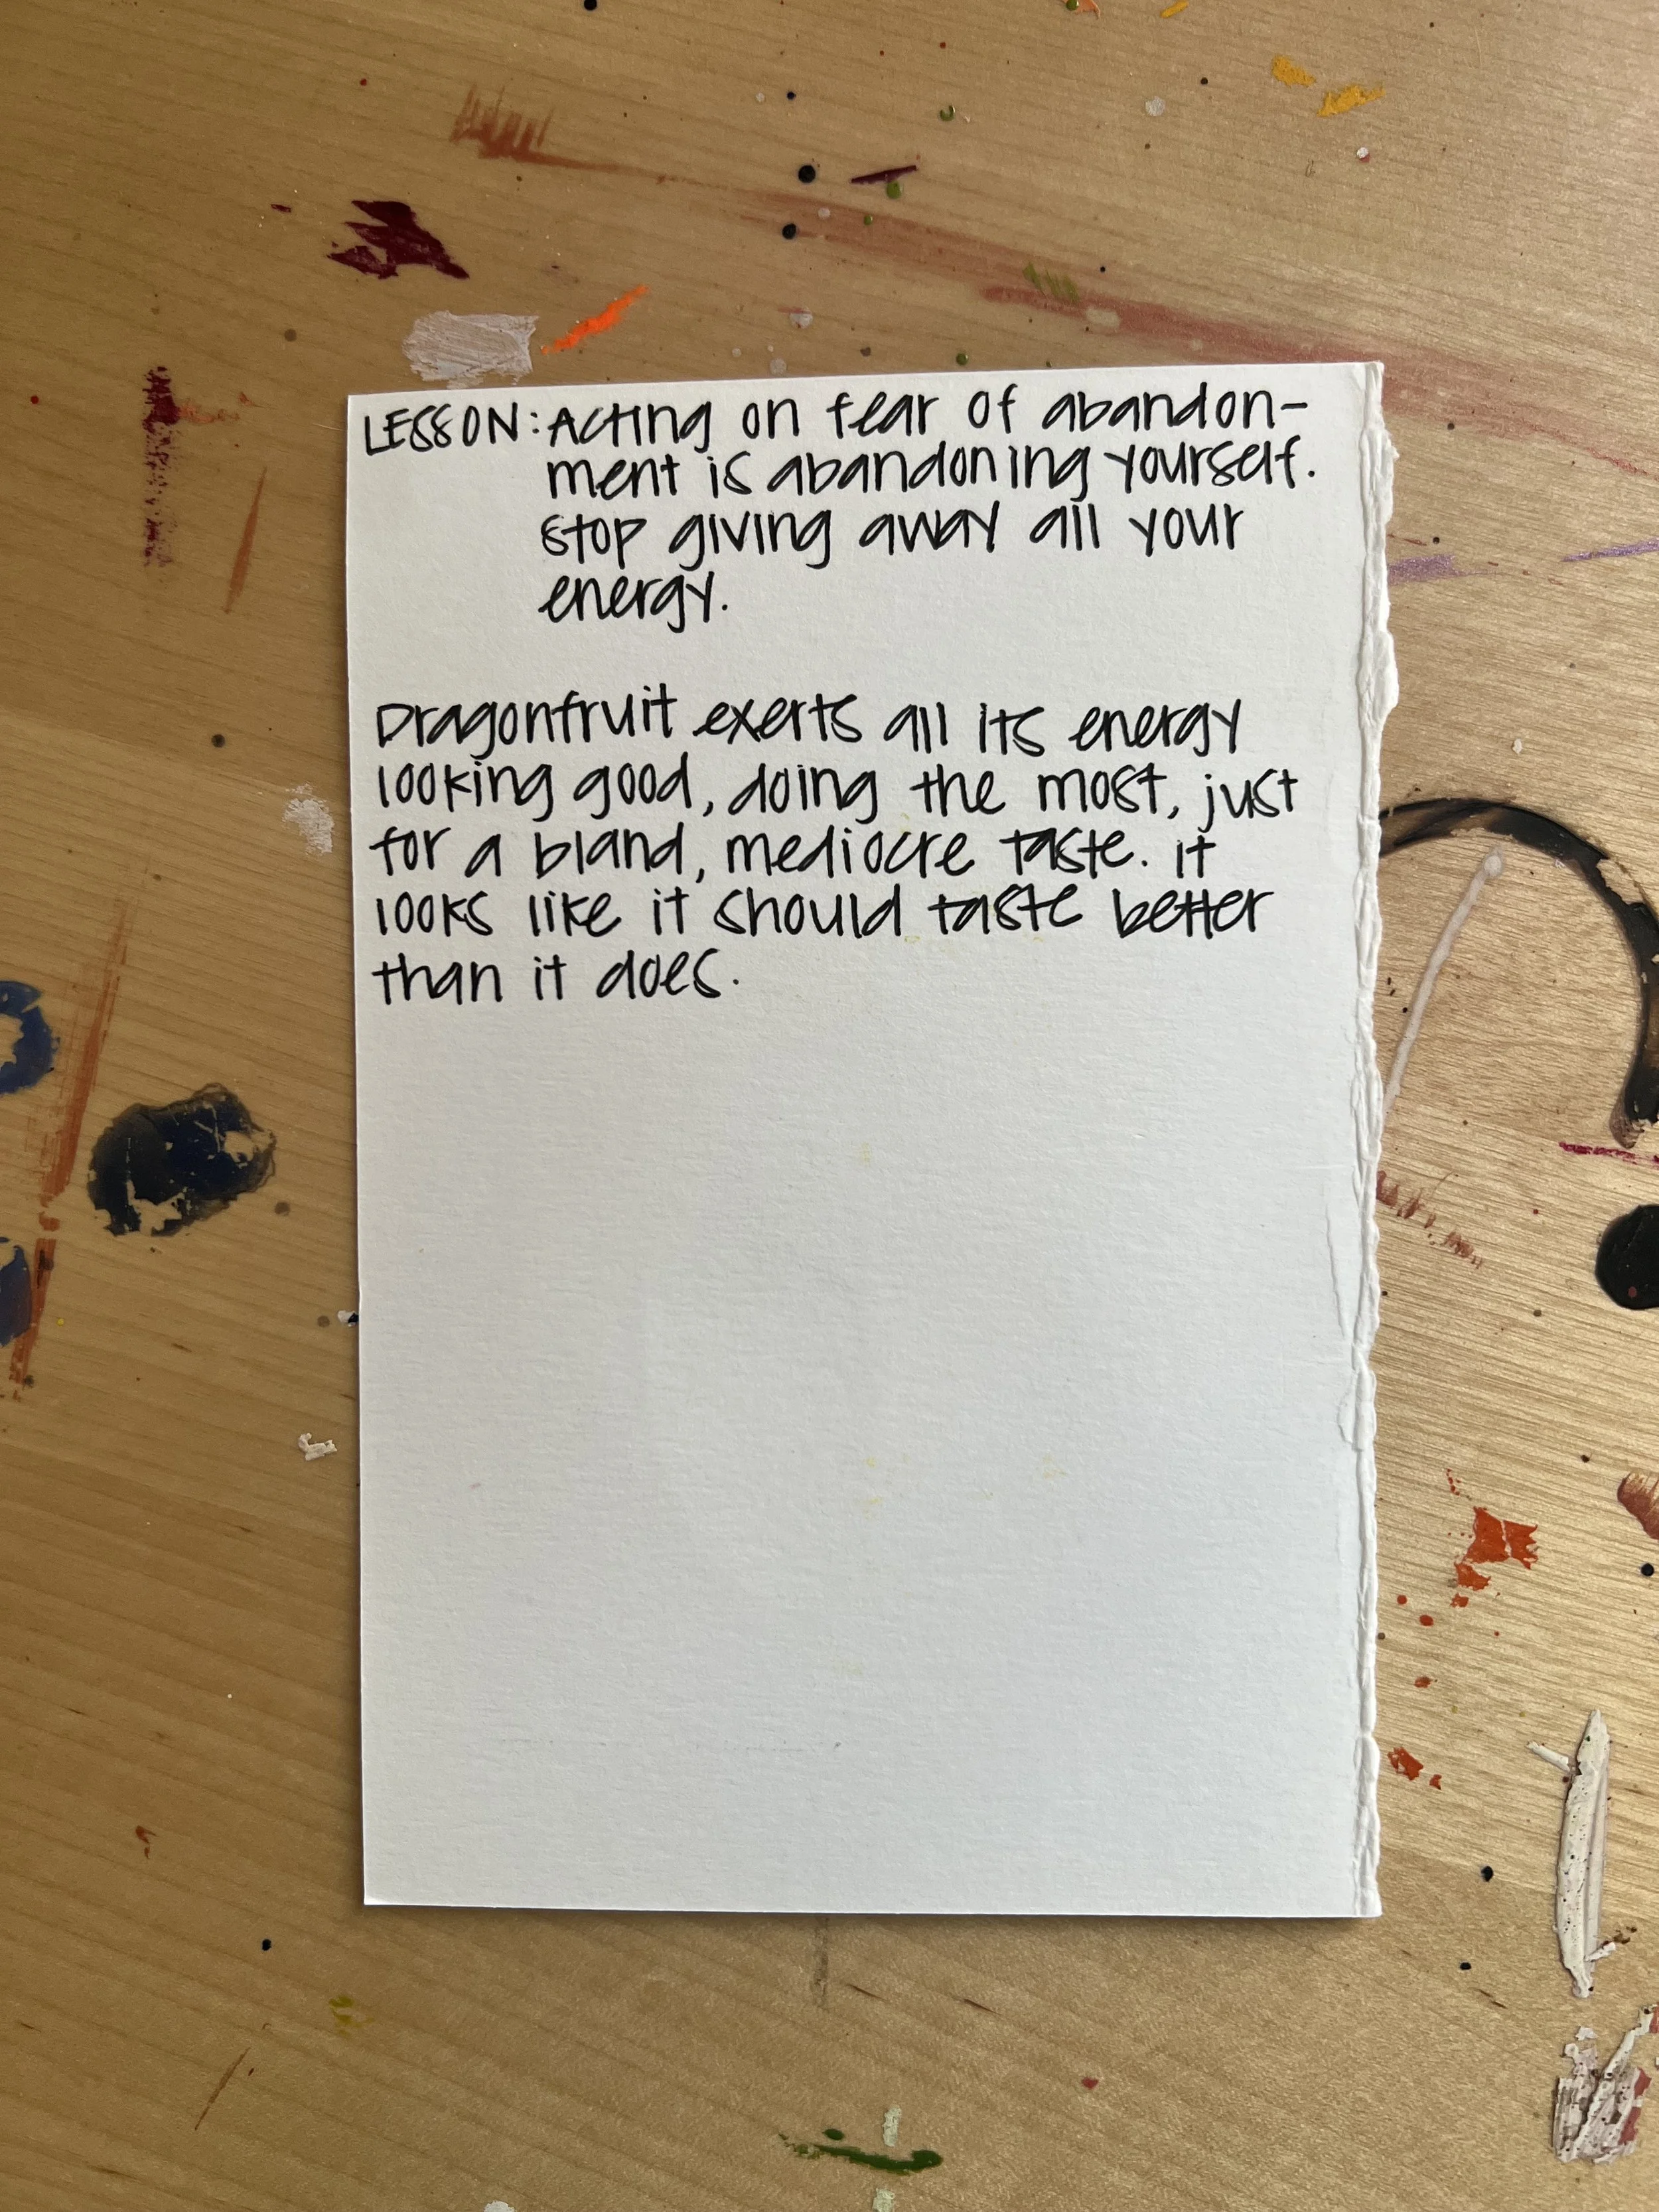 LESSON: Acting on fear of abandon-
ment is abandoning yourself.
Stop giving away all your
energy.
Dragonfruit exerts all its energy
looking good, doing the most, just
for a bland, mediocre taste. It
looks like it should taste better
than it does.